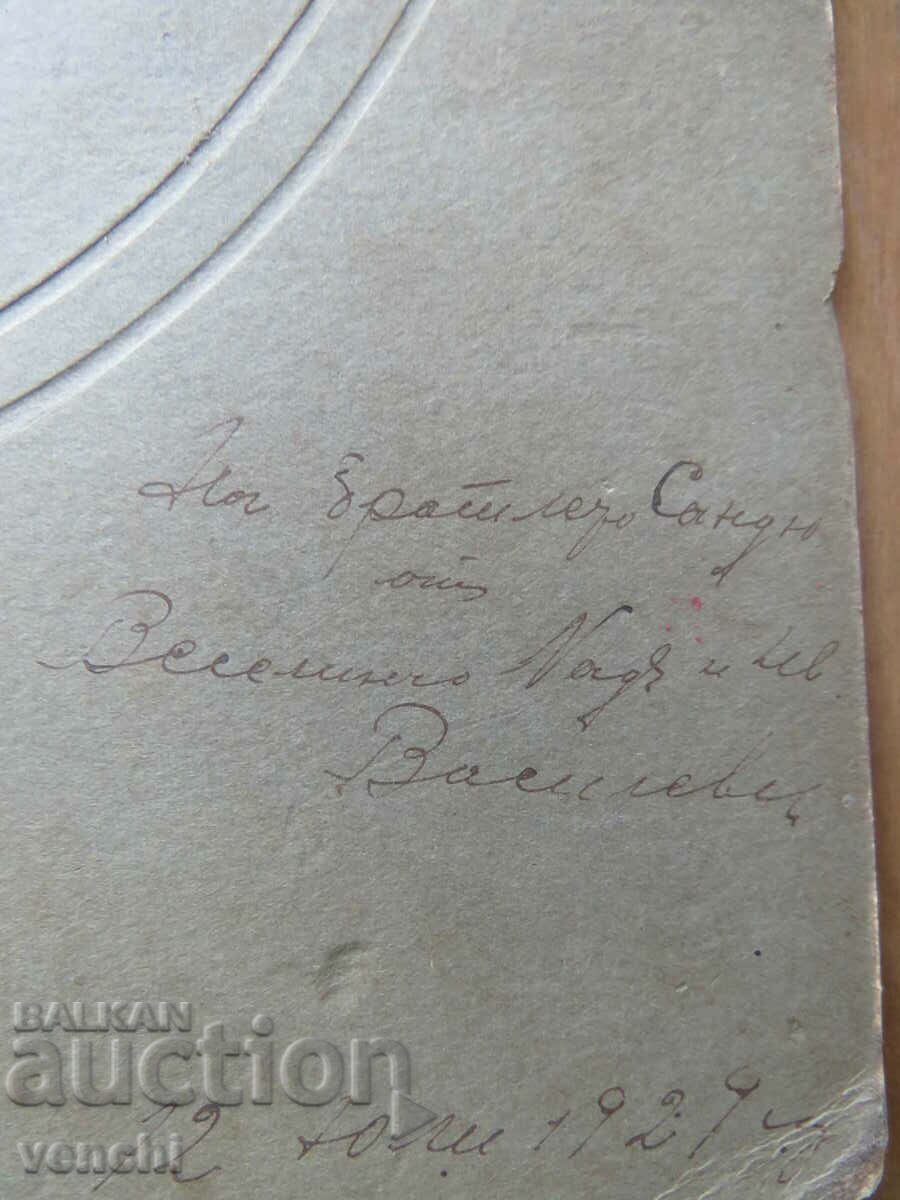 На братлето Сандю
отъ
Веселинчо Надя и Ив
Василеви
12 Юли 1929 г
BALKAN
auction
venchi